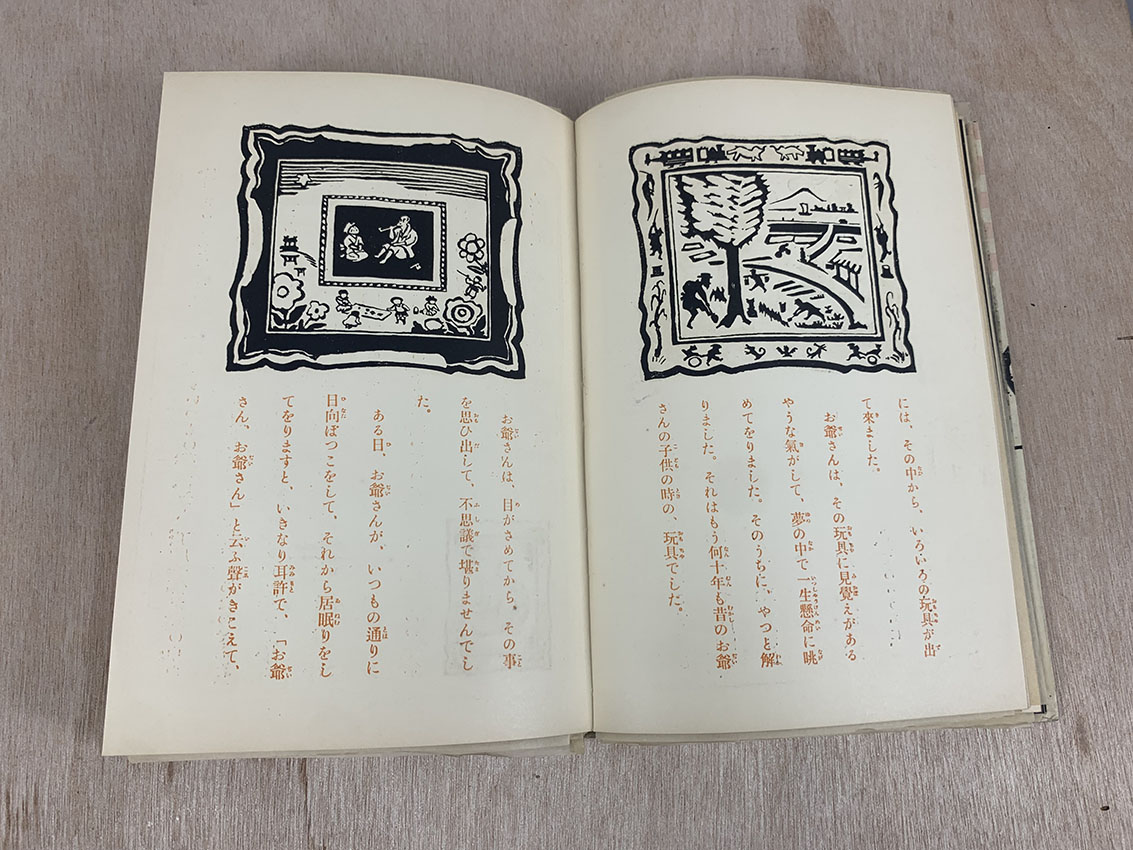 には、その中から、いろいろの玩具が出
て來ました。
お爺さんは、その玩具に見覺えがある
やうな氣がして、夢の中で一生懸命に眺
めてをりました。そのうちに、やつと解
りました。それはもう何十年も昔のお爺
さんの子供の時の、玩具でした。
お爺さんは、目がさめてから、その事
を思ひ出して、不思議で堪りませんでし
た。
ある日、お爺さんが、いつもの通りに
日向ぼつこをして、それから居眠りをし
てをりますと、いきなり耳許で、「お爺
さん、お爺さん」と云ふ聲がきこえて、